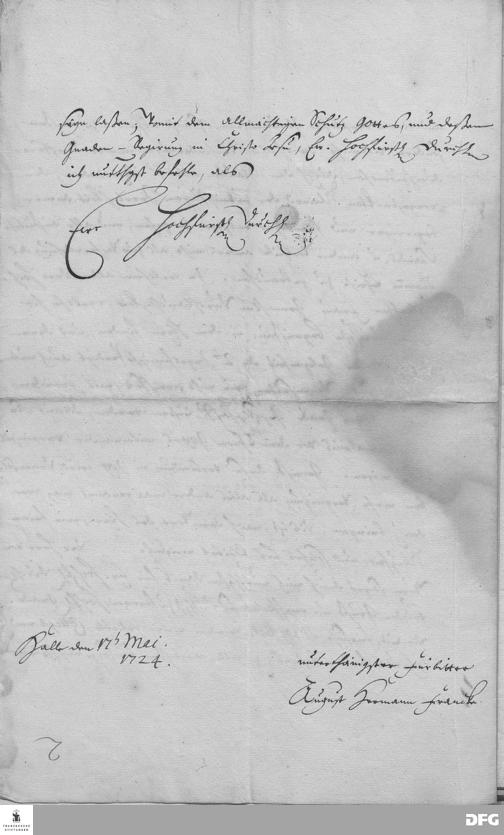 seyn laßen; Womit dem Allmächtigen Schutz Gottes, und deßen
Gnaden-Regirung in Christo Jesu, Ew. Hochfürstl. Durchl.
ich befehle, als
Ew. Hochfürstl. Durchl.
Halle den 17 Mai.
1724.
unterthänigster Fürbitter
August Hermann Francke.
FRANCKESCHE
STIFTUNGEN
DFG